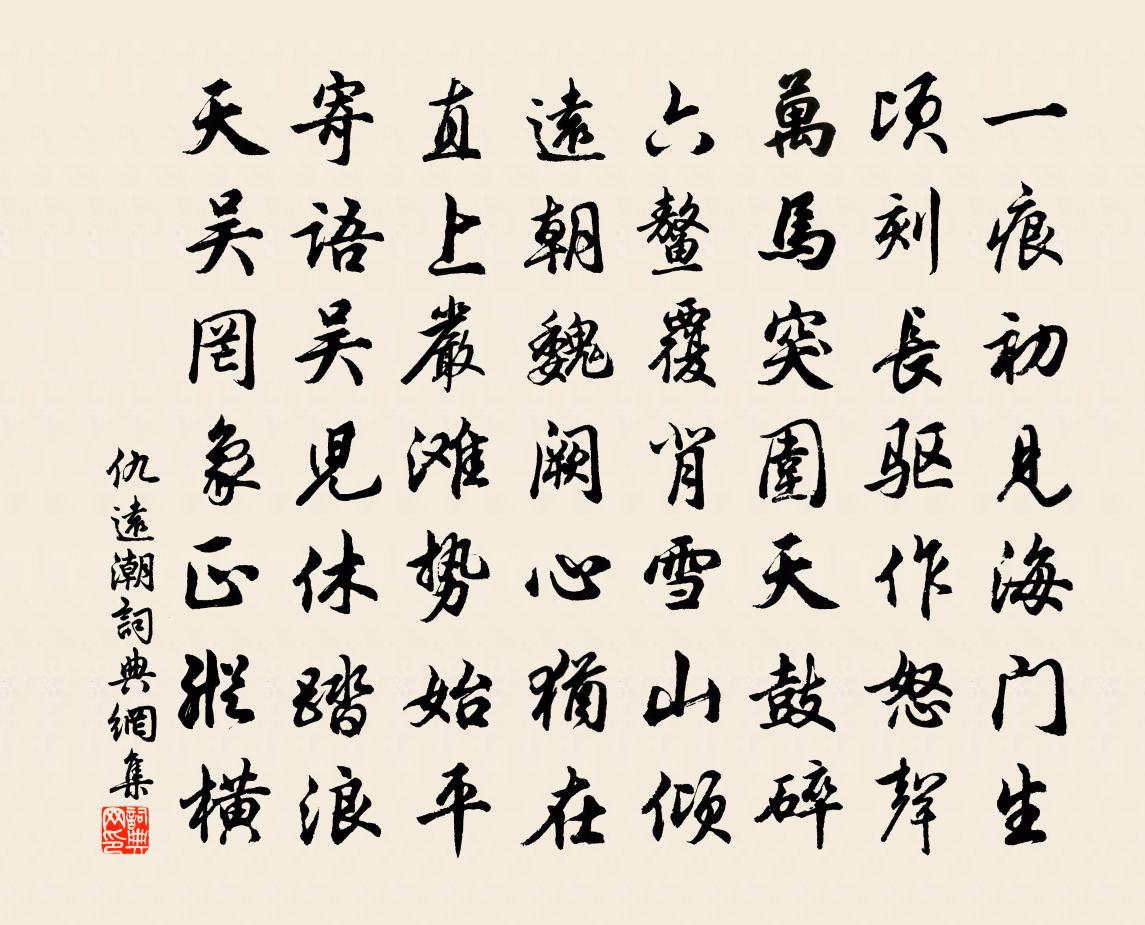 一痕初見海门生
頃刻長驱作怒聲
萬馬突圍天鼓碎
六鳌覆背雪山傾
遠朝魏阙心猶在
直上嚴滩势始平
寄語吴児休踏浪
天吴罔象正縱橫
仇遠潮詞典網集
詞典网印